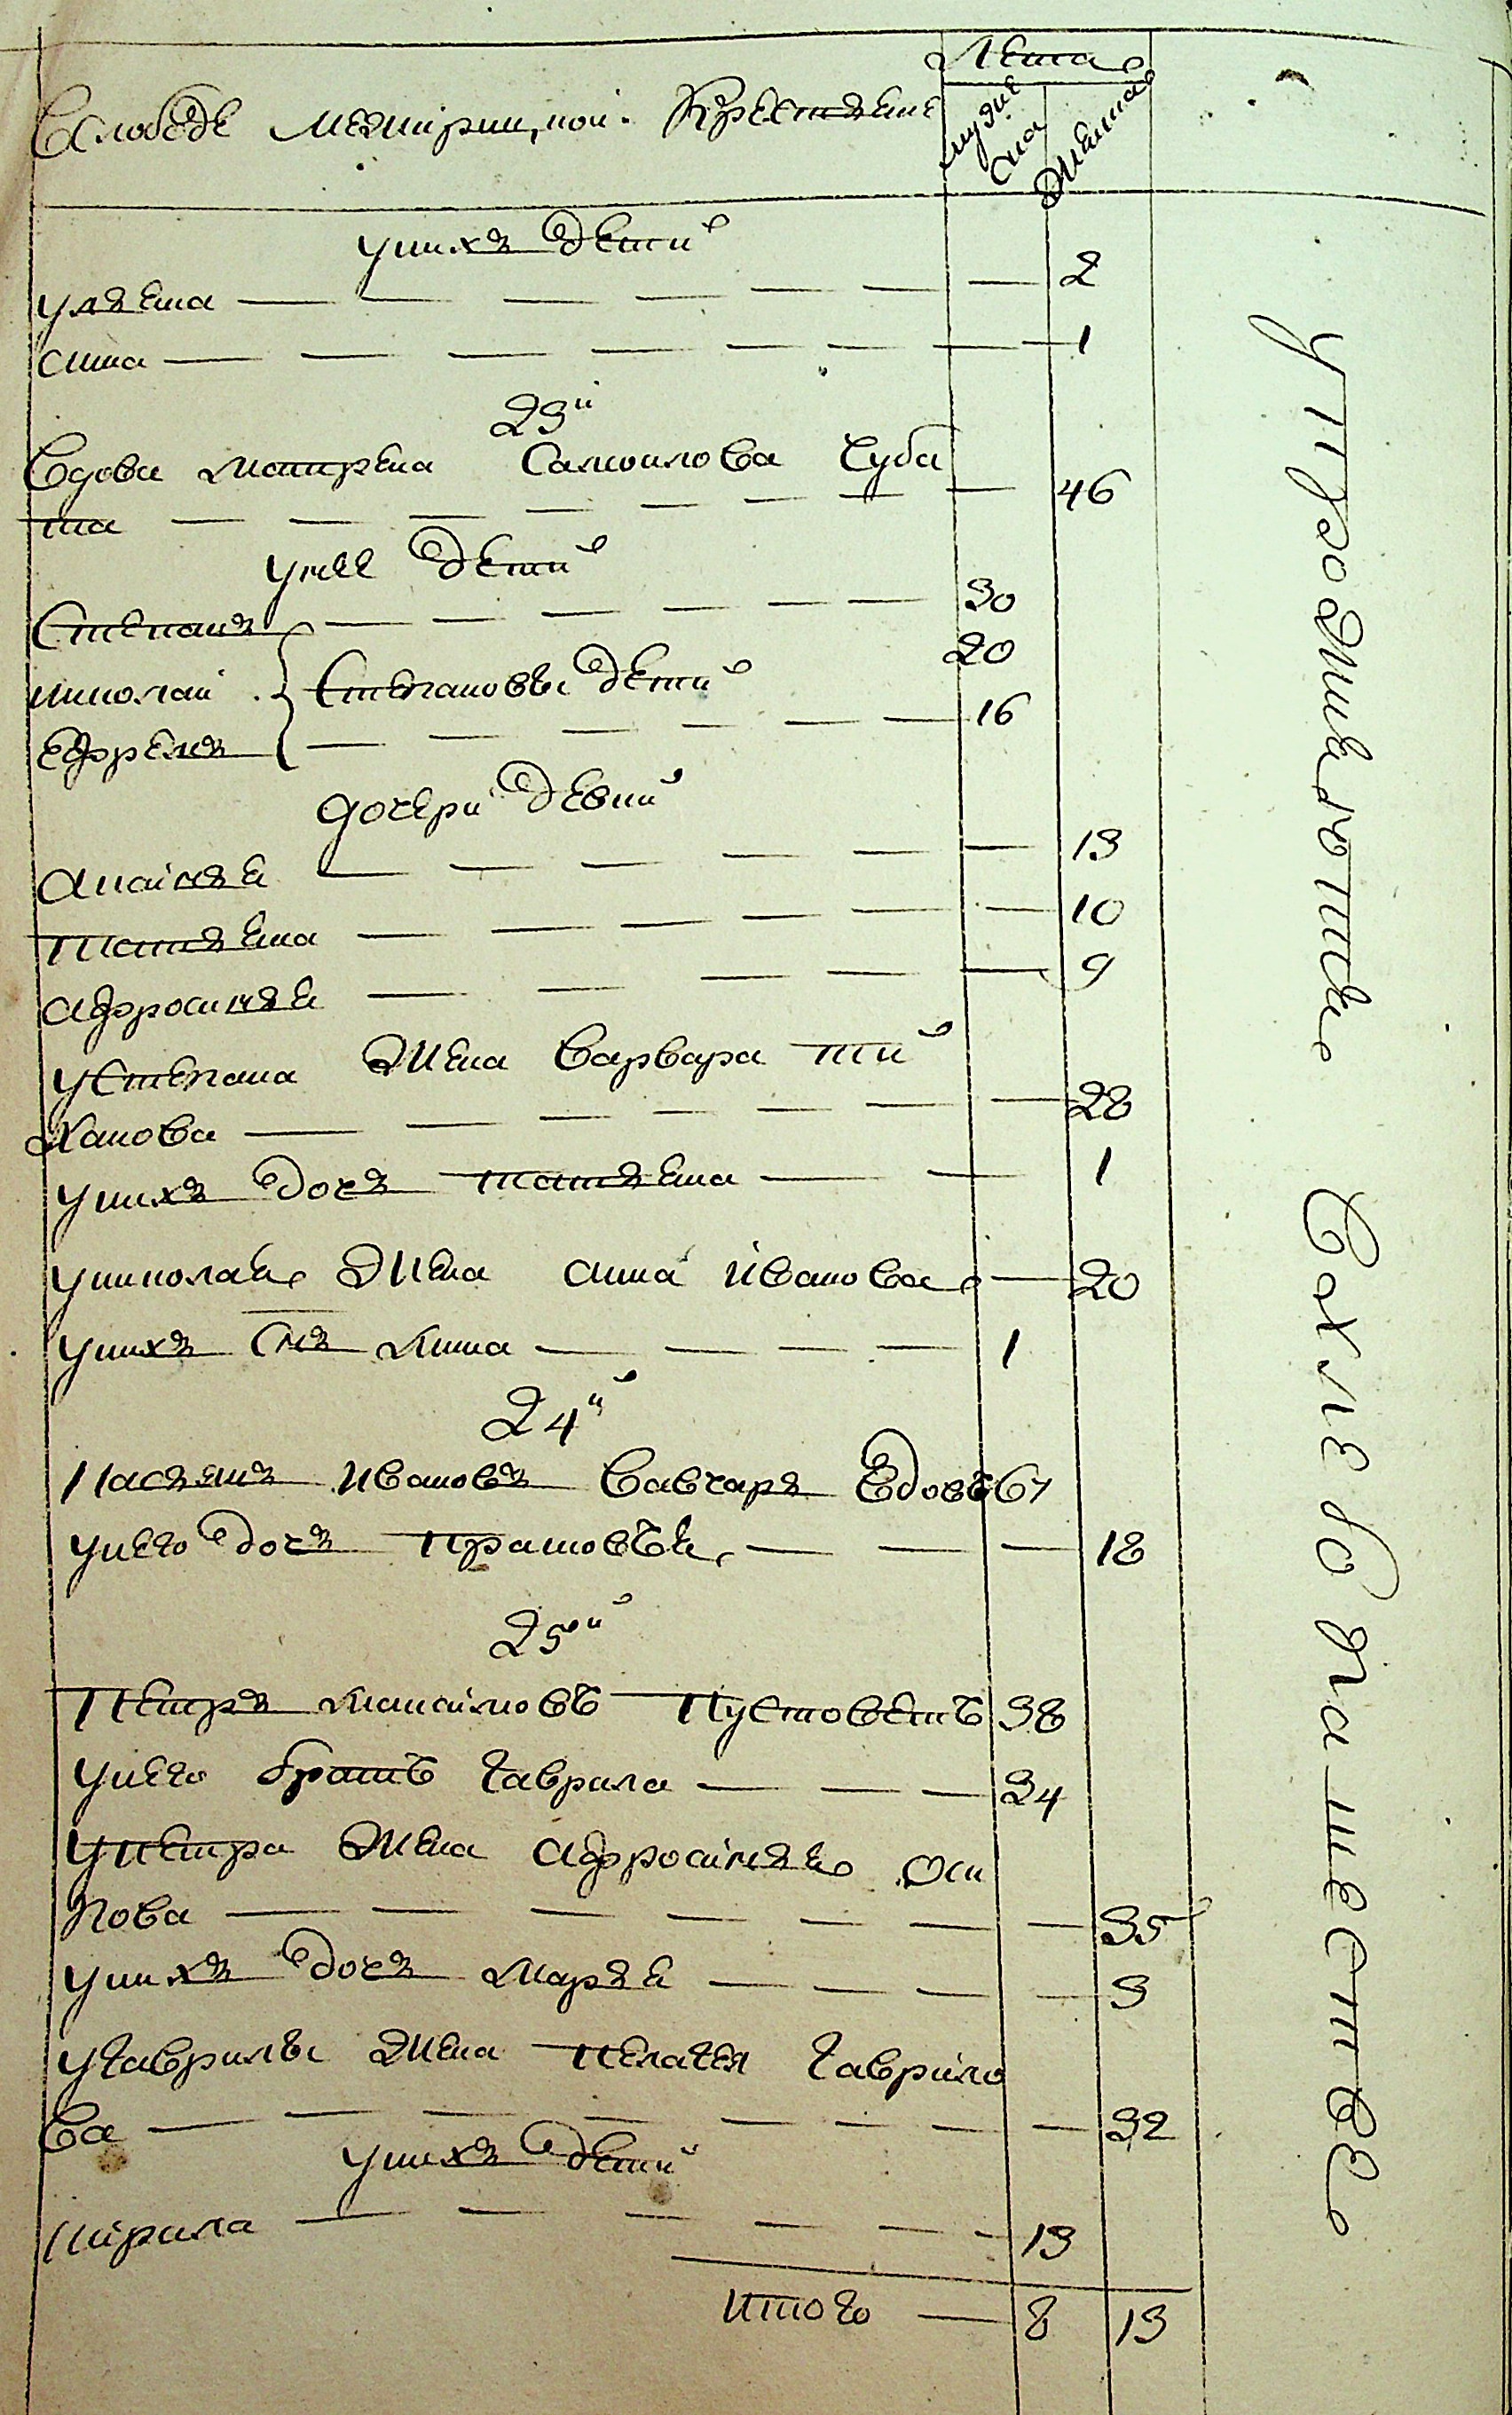 Слободе Меяпрки,ной. Крестяне
Лета
мужеска
Женска
уних детй
уляена — 2
анна — 1
23й
Вдова матрена Самоилова Чуба
та — 46
унее детй
Степанъ — 30
николаи Степановы детй 20
ефремъ — 16
дочери девкй
анасiмя — 13
татяена — 10
афросимя — 9
устепана Жена варвара ти
ханова — 28
унихъ дочь татяена — 1
униколая Жена анна ивановa — 20
унихъ Снъ Лина — 1
24й
Касянъ ивановъ вавчаръ вдовъ 67
унего дочь прасковея — 18
25й
Петръ Михаиловъ Пустоветъ 38
унего братъ гаврила — 34
упетра Жена афросiмя оси
пова — 35
унихъ дочь марея — 3
угаврилы Жена пелагея гаврило
ва — 32
унихъ детй
кирила — 13
итого — 8 13
утрожителства
Вохлебопашестве